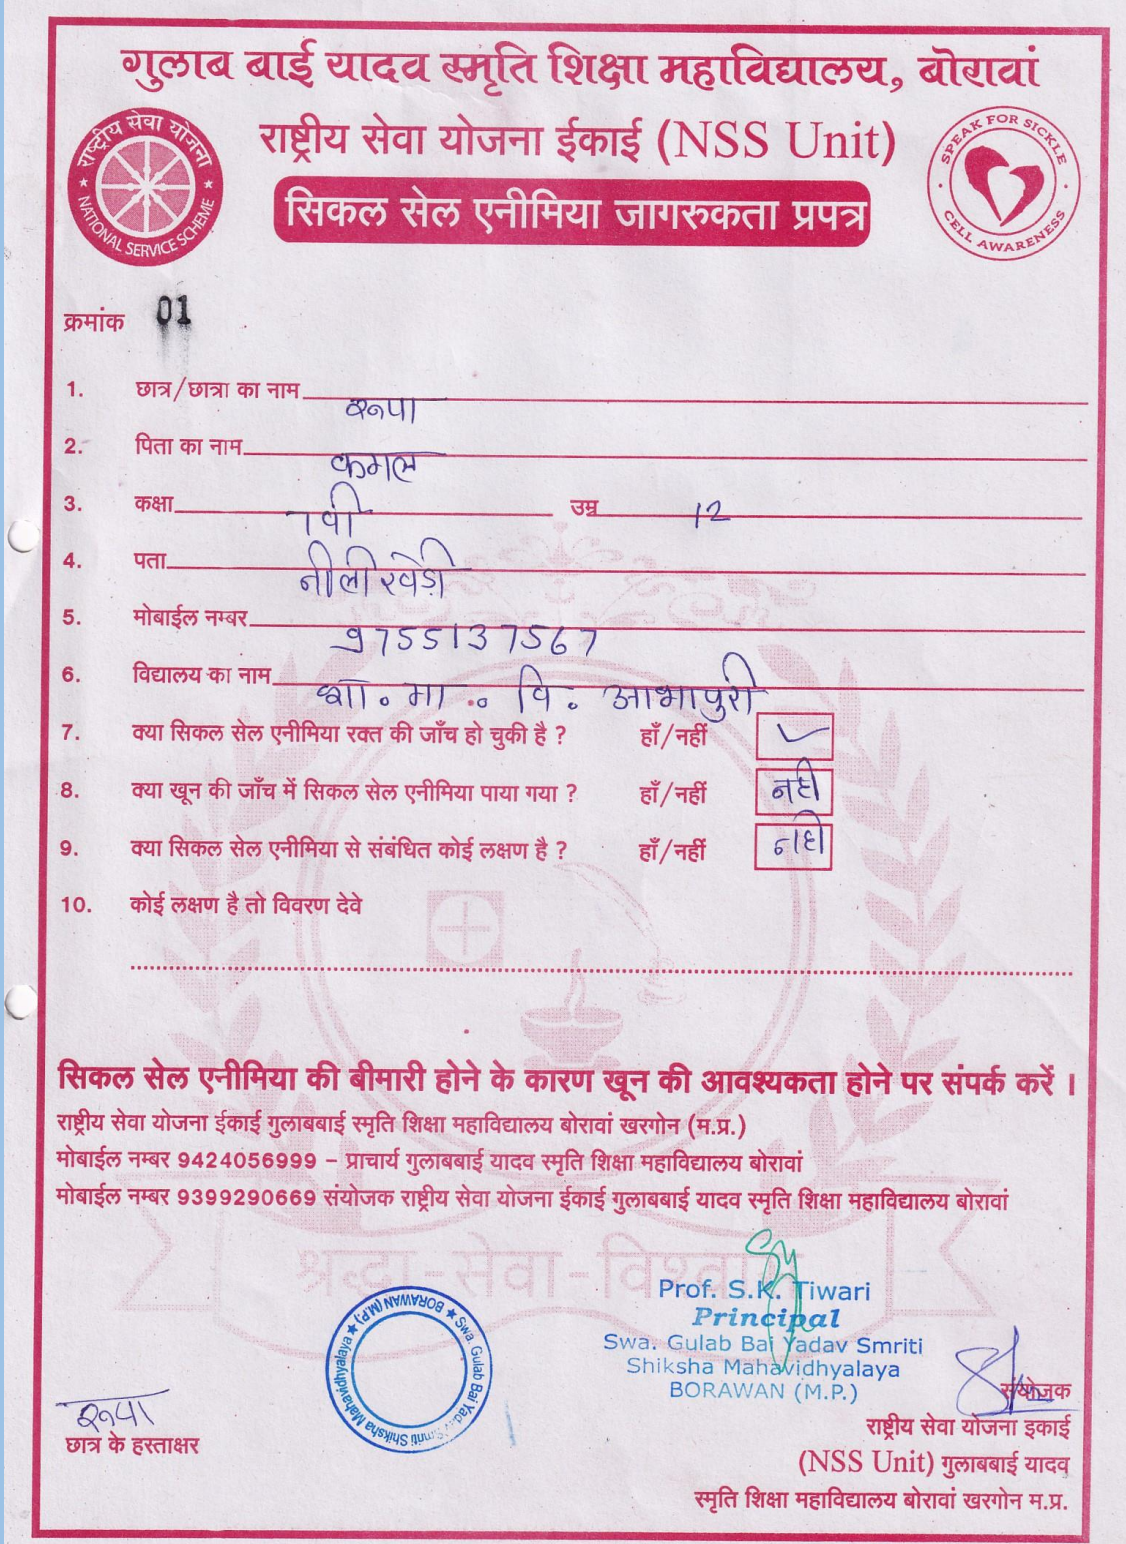 गुलाब बाई यादव स्मृति शिक्षा महाविद्यालय, बोरावां
राष्ट्रीय सेवा योजना ईकाई (NSS Unit)
राष्ट्रीय सेवा योजना
NATIONAL SERVICE SCHEME
SPEAK FOR SICKLE
CELL AWARENESS
सिकल सेल एनीमिया जागरुकता प्रपत्र
क्रमांक 01
1. छात्र/छात्रा का नाम रूपा
2. पिता का नाम कमल
3. कक्षा 7वी उम्र 12
4. पता नीलीखेड़ी
5. मोबाईल नम्बर 9755137567
6. विद्यालय का नाम शा. मा. वि. आभापुरी
7. क्या सिकल सेल एनीमिया रक्त की जाँच हो चुकी है ? हाँ/नहीं ✓
8. क्या खून की जाँच में सिकल सेल एनीमिया पाया गया ? हाँ/नहीं नही
9. क्या सिकल सेल एनीमिया से संबंधित कोई लक्षण है ? हाँ/नहीं नही
10. कोई लक्षण है तो विवरण देवे
सिकल सेल एनीमिया की बीमारी होने के कारण खून की आवश्यकता होने पर संपर्क करें ।
राष्ट्रीय सेवा योजना ईकाई गुलाबबाई स्मृति शिक्षा महाविद्यालय बोरावां खरगोन (म.प्र.)
मोबाईल नम्बर 9424056999 – प्राचार्य गुलाबबाई यादव स्मृति शिक्षा महाविद्यालय बोरावां
मोबाईल नम्बर 9399290669 संयोजक राष्ट्रीय सेवा योजना ईकाई गुलाबबाई यादव स्मृति शिक्षा महाविद्यालय बोरावां
श्रद्धा-सेवा-विश्वास
Prof. S.K. Tiwari
Principal
Swa. Gulab Bai Yadav Smriti
Shiksha Mahavidhyalaya
BORAWAN (M.P.)
Swa. Gulab Bai Yadav Smriti Shiksha Mahavidhyalaya ★ BORAWAN (M.P.) ★
रूपा
छात्र के हस्ताक्षर
संयोजक
राष्ट्रीय सेवा योजना इकाई
(NSS Unit) गुलाबबाई यादव
स्मृति शिक्षा महाविद्यालय बोरावां खरगोन म.प्र.